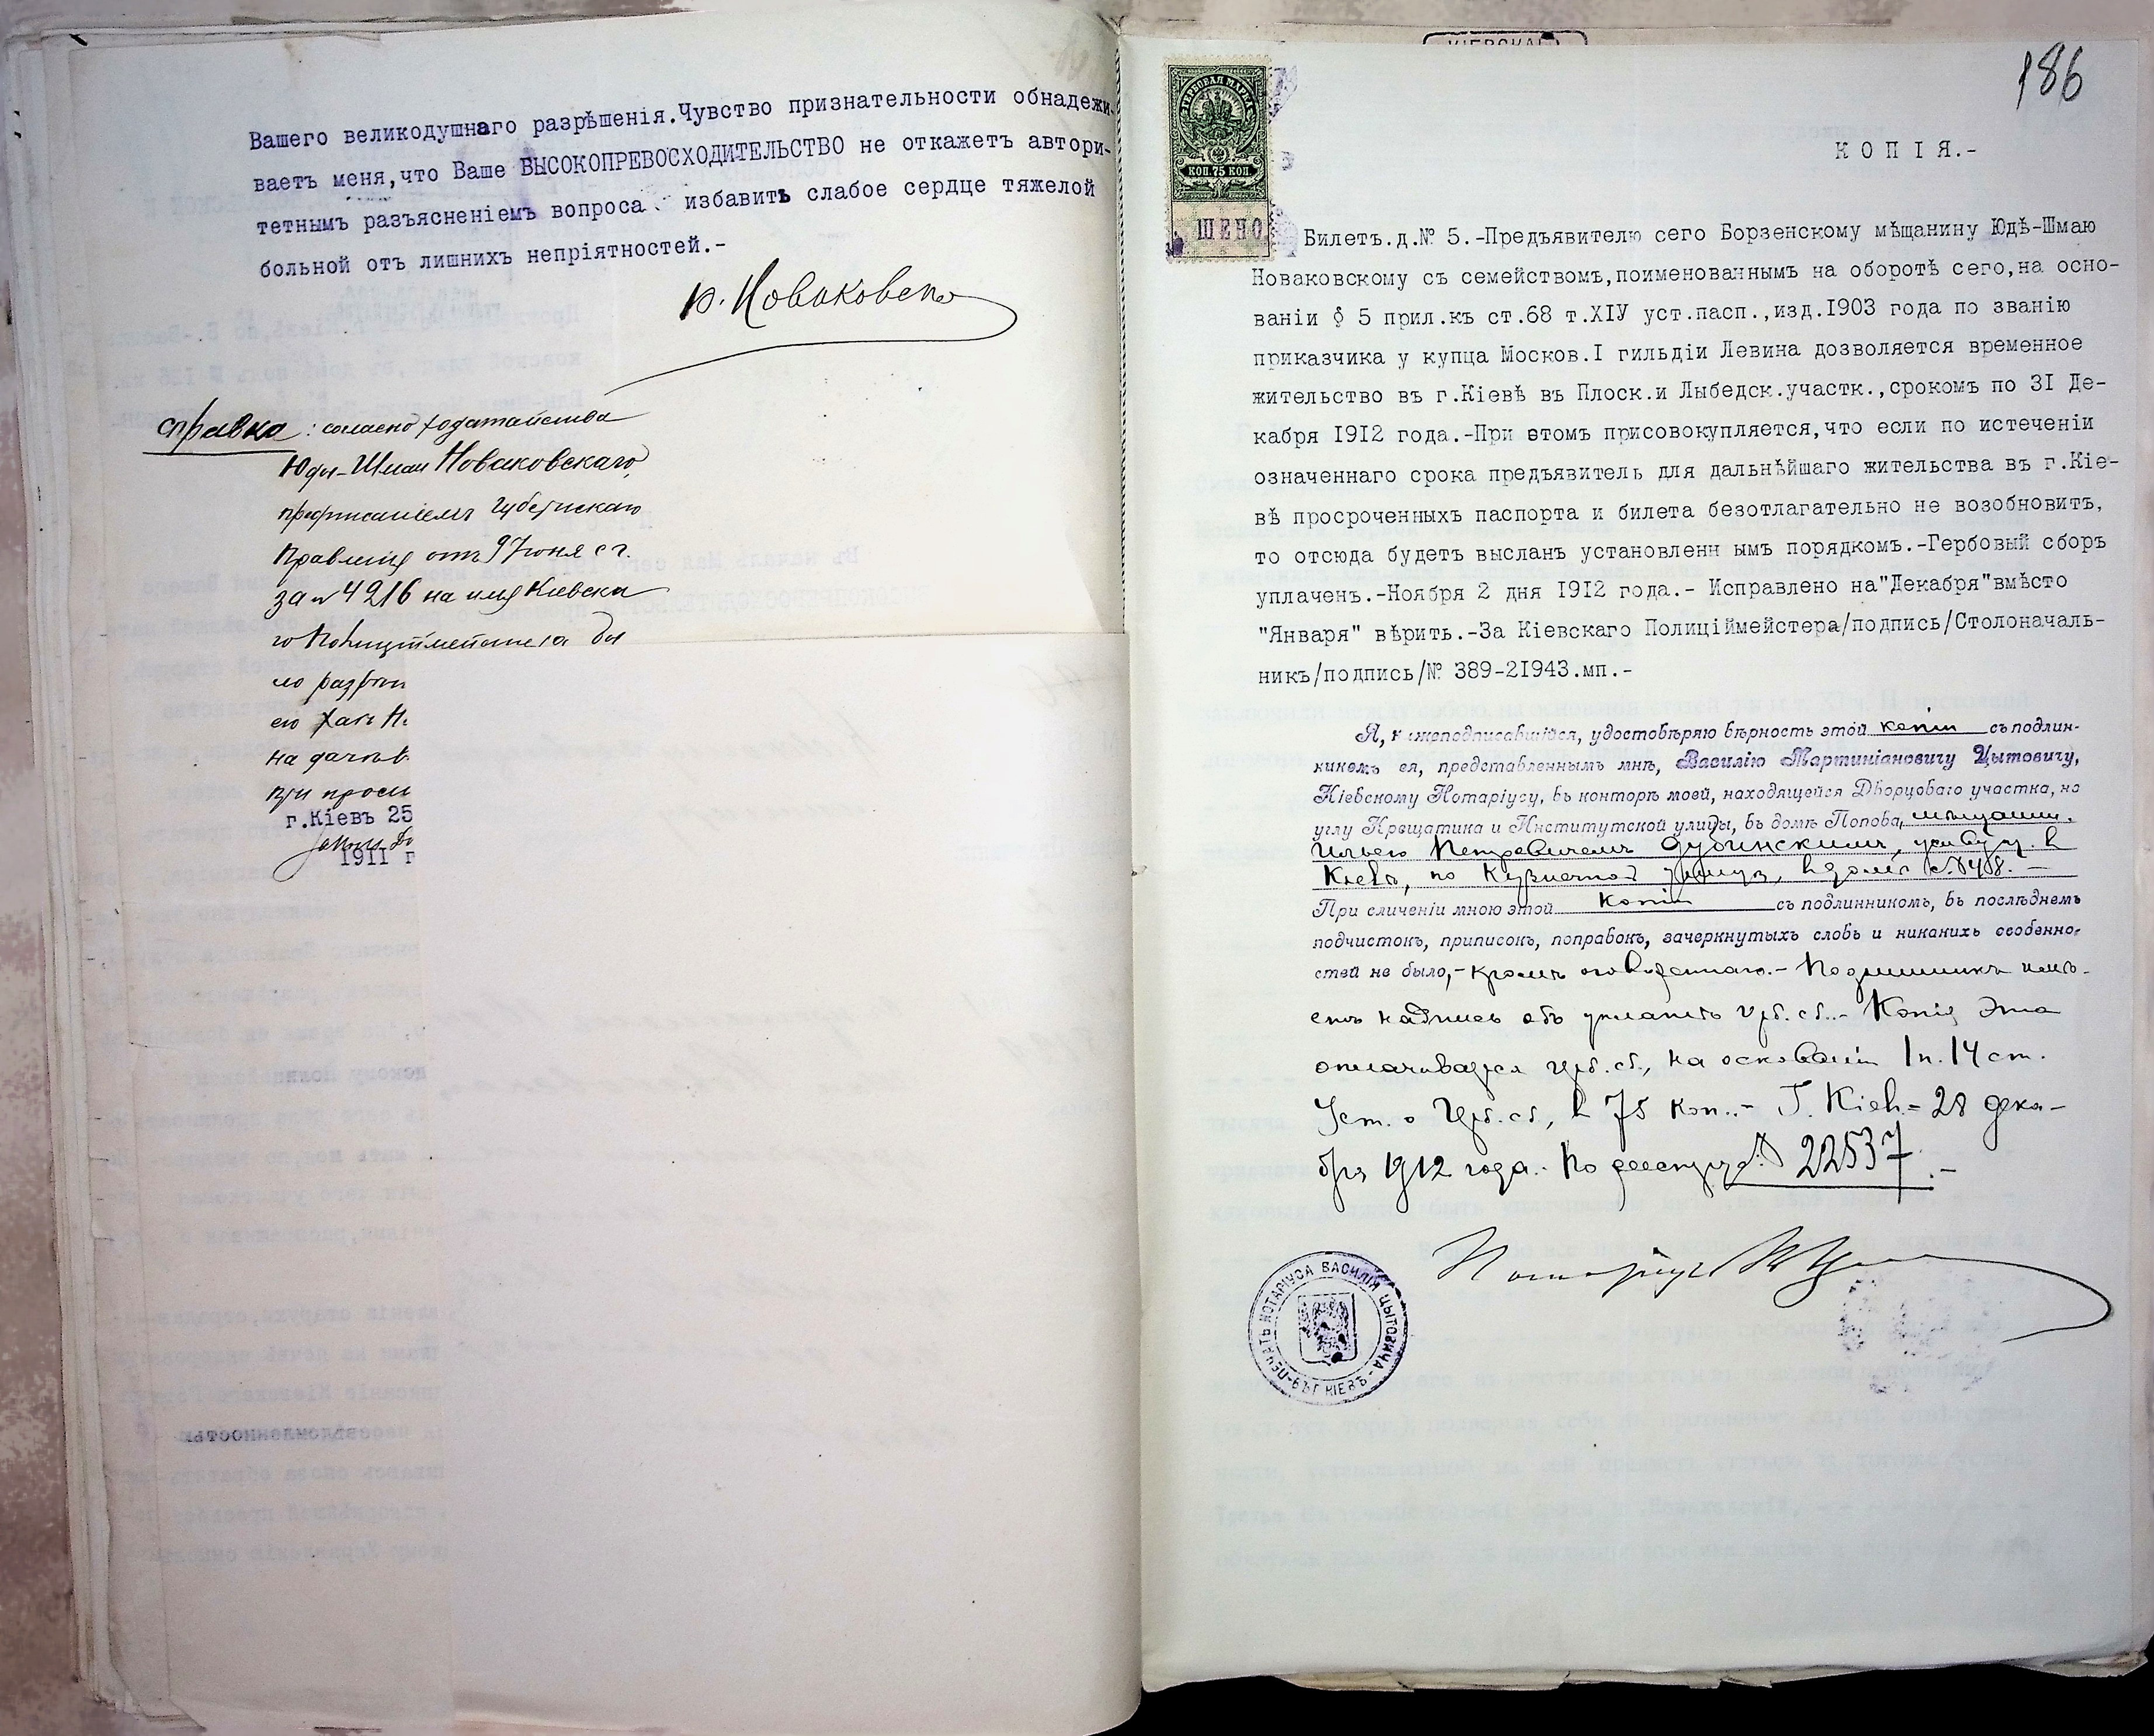 Вашего великодушнаго разрѣшенія.Чувство признательности обнадежи-
ваетъ меня,что Ваше ВЫСОКОПРЕВОСХОДИТЕЛЬСТВО не откажетъ автори-
тетнымъ разъясненіемъ вопроса избавить слабое сердце тяжелой
больной отъ лишнихъ непріятностей.-
Ю. Новаковск
Справка: согласно ходатайства
Юды-Шмаи Новаковскаго,
предписаніемъ Губернскаго
Правленія отъ 9 Іюня с г.
за № 4216 на имя Кіевска
го Полиціймейстера бы
ло разрѣш
его
на дачов
при
г.Кіевъ 25
1911 г
КІЕВСКАЯ
186
ГЕРБОВАЯ МАРКА
КОП.75 КОП.
ШЕНО
КОПІЯ.-
Билетъ.д.№ 5.-Предъявителю сего Борзенскому мѣщанину Юдѣ-Шмаю
Новаковскому съ семействомъ,поименованнымъ на оборотѣ сего,на осно-
ваніи § 5 прил.къ ст.68 т.XIУ уст.пасп.,изд.1903 года по званію
приказчика у купца Москов.I гильдіи Левина дозволяется временное
жительство въ г.Кіевѣ въ Плоск.и Лыбедск.участк.,срокомъ по 31 Де-
кабря 1912 года.-При этомъ присовокупляется,что если по истеченіи
означеннаго срока предъявитель для дальнѣйшаго жительства въ г.Кіе-
вѣ просроченныхъ паспорта и билета безотлагательно не возобновитъ,
то отсюда будетъ высланъ установленн ымъ порядкомъ.-Гербовый сборъ
уплаченъ.-Ноября 2 дня 1912 года.- Исправлено на"Декабря"вмѣсто
"Января" вѣрить.-За Кіевскаго Полиціймейстера/подпись/Столоначаль-
никъ/подпись/№ 389-21943.мп.-
Я, нижеподписавшійся, удостовѣряю вѣрность этой копіи съ подлин-
никомъ ея, представленнымъ мнѣ, Василію Мартиніановичу Цытовичу,
Кіевскому Нотаріусу, въ конторѣ моей, находящейся Дворцоваго участка, на
углу Крещатика и Институтской улицы, въ домѣ Попова, мѣщанин.
Ильею Петровичемъ Дубинскимъ, живущ. в
Кіевѣ, по Кузнечной улицѣ, в домѣ № 48. —
При сличеніи мною этой копіи съ подлинникомъ, въ послѣднемъ
подчистокъ, приписокъ, поправокъ, зачеркнутыхъ словъ и никакихъ особенно-
стей не было,- кромѣ оговореннаго.- Подлинникъ имѣ-
етъ надпись объ уплатѣ герб. сб..- Копія эта
оплачивается герб. сб., на основаніи 1 п. 14 ст.
Уст. о герб. сб., в 75 коп..- Г. Кіев.= 28 дека-
бря 1912 года.- По реестру № 22537.-
Нотаріусъ В Цы
ПЕЧАТЬ НОТАРІУСА ВАСИЛІЯ ЦЫТОВИЧА -ВЪ Г КІЕВѢ-